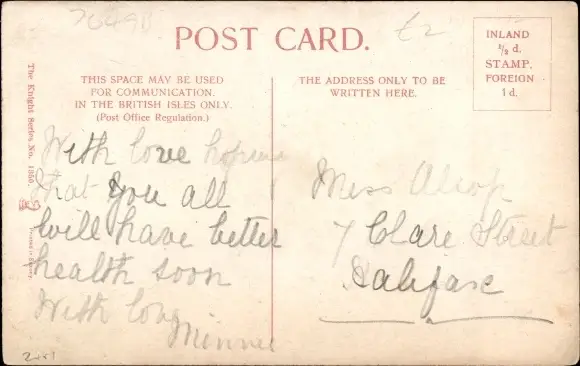 7649B
£2
POST CARD.
INLAND
½ d.
STAMP,
FOREIGN
1 d.
THIS SPACE MAY BE USED
FOR COMMUNICATION.
IN THE BRITISH ISLES ONLY.
(Post Office Regulation.)
THE ADDRESS ONLY TO BE
WRITTEN HERE.
The Knight Series No. 1850.
With love hoping
that you all
will have better
health soon
With love
Minnie
Miss Alsop
7 Clare Street
Halifax